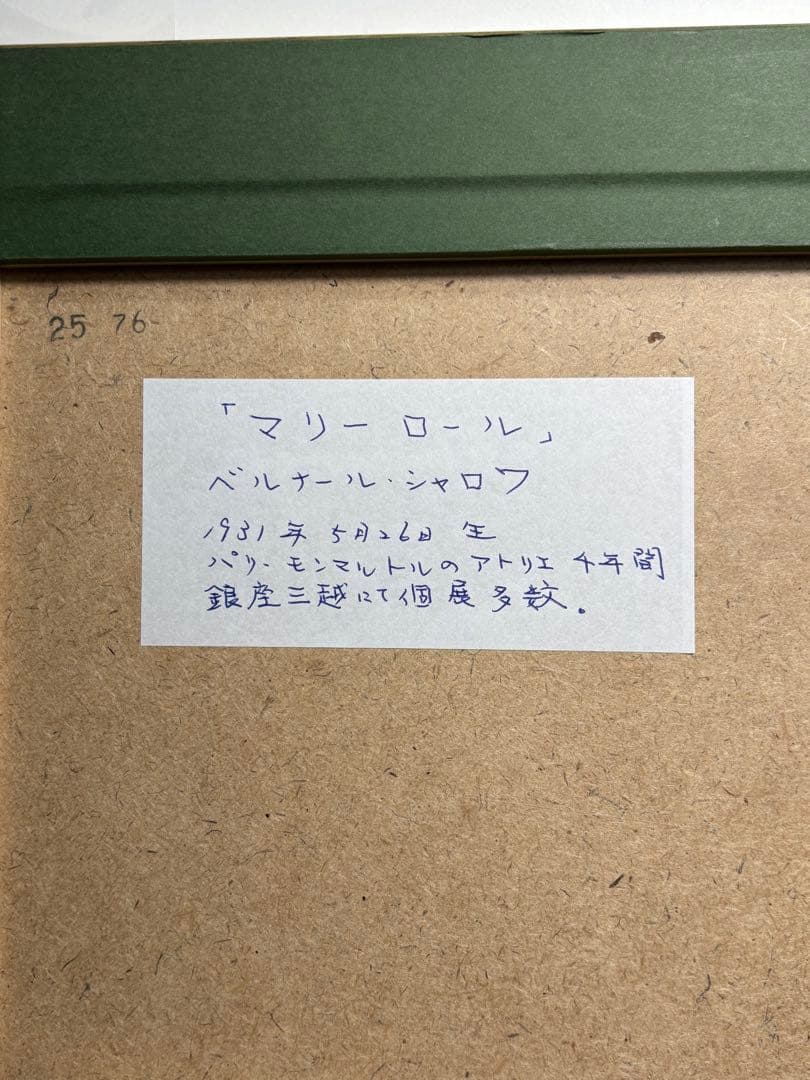 25 76
「マリー ロール」
ベルナール・シャロワ
1931年 5月26日 生
パリーモンマルトルのアトリエ 4年間
銀座三越にて個展多数。